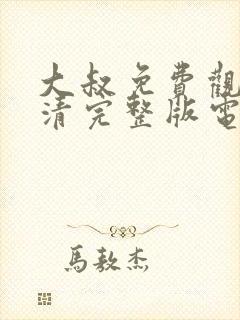 大叔免費觀
清完整版電
馬敖杰